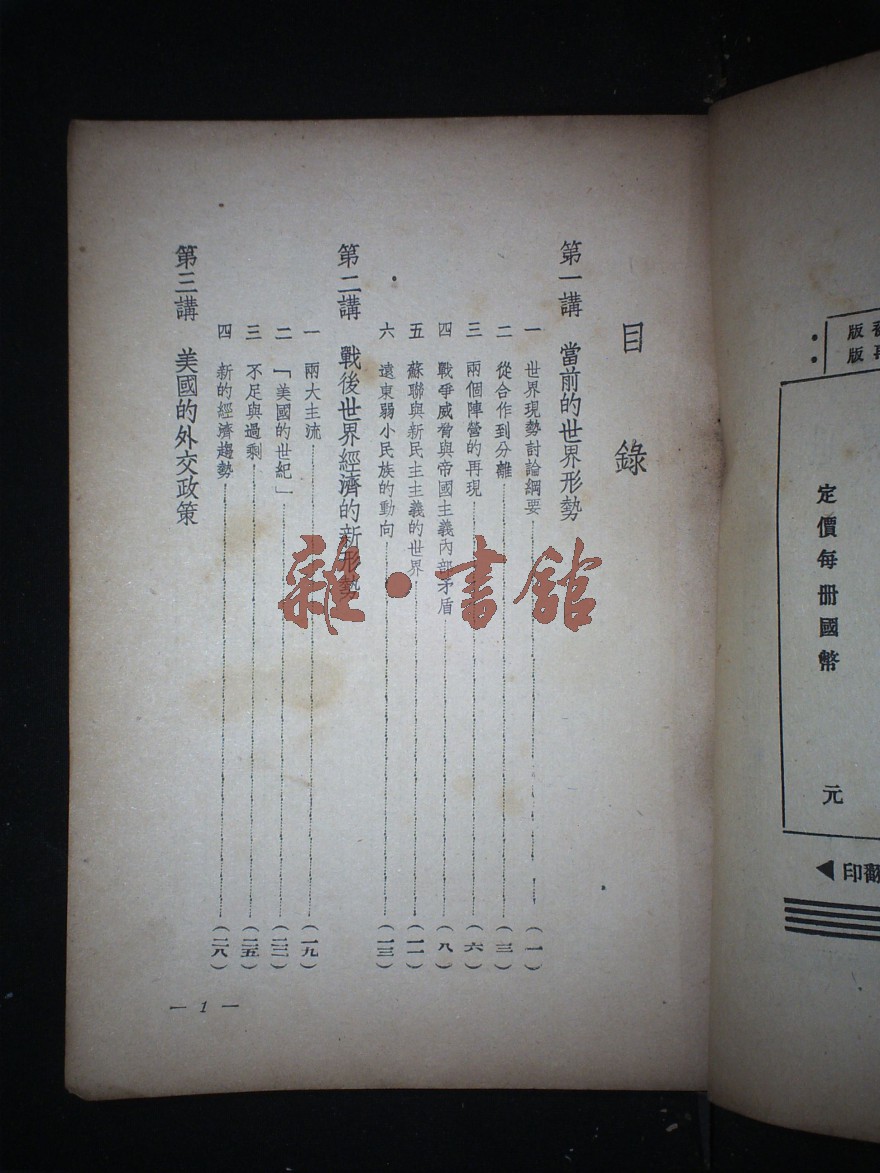 版
版
定價每册國幣　元
印翻
目錄
第一講 當前的世界形勢
一 世界現勢討論綱要（一）
二 從合作到分離（三）
三 兩個陣營的再現（六）
四 戰爭威脅與帝國主義內部矛盾（八）
五 蘇聯與新民主主義的世界（一一）
六 遠東弱小民族的動向（一三）
第二講 戰後世界經濟的新形勢
一 兩大主流（一九）
二 「美國的世紀」（二二）
三 不足與過剩（二五）
四 新的經濟趨勢（二八）
第三講 美國的外交政策
— 1 —
雜·書館